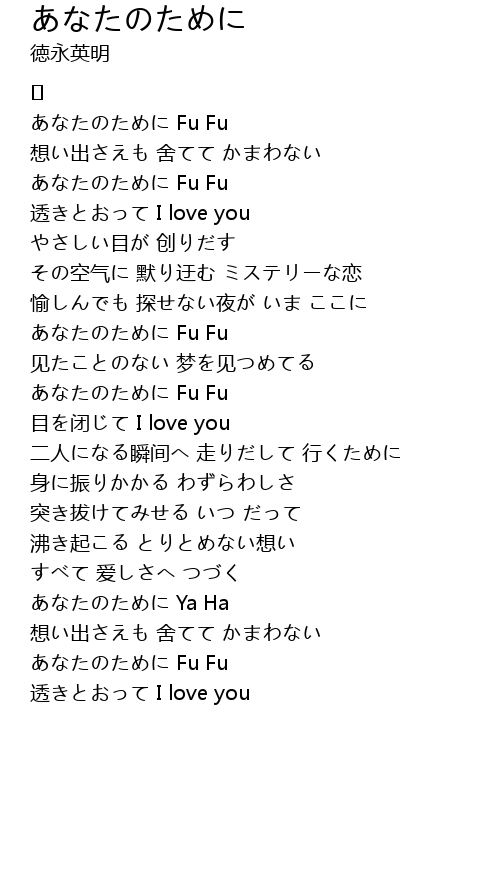 あなたのために
徳永英明
[]
あなたのために Fu Fu
想い出さえも 舍てて かまわない
あなたのために Fu Fu
透きとおって I love you
やさしい目が 创りだす
その空气に 默り迂む ミステリーな恋
愉しんでも 探せない夜が いま ここに
あなたのために Fu Fu
见たことのない 梦を见つめてる
あなたのために Fu Fu
目を闭じて I love you
二人になる瞬间へ 走りだして 行くために
身に振りかかる わずらわしさ
突き拔けてみせる いつ だって
沸き起こる とりとめない想い
すべて 爱しさへ つづく
あなたのために Ya Ha
想い出さえも 舍てて かまわない
あなたのために Fu Fu
透きとおって I love you